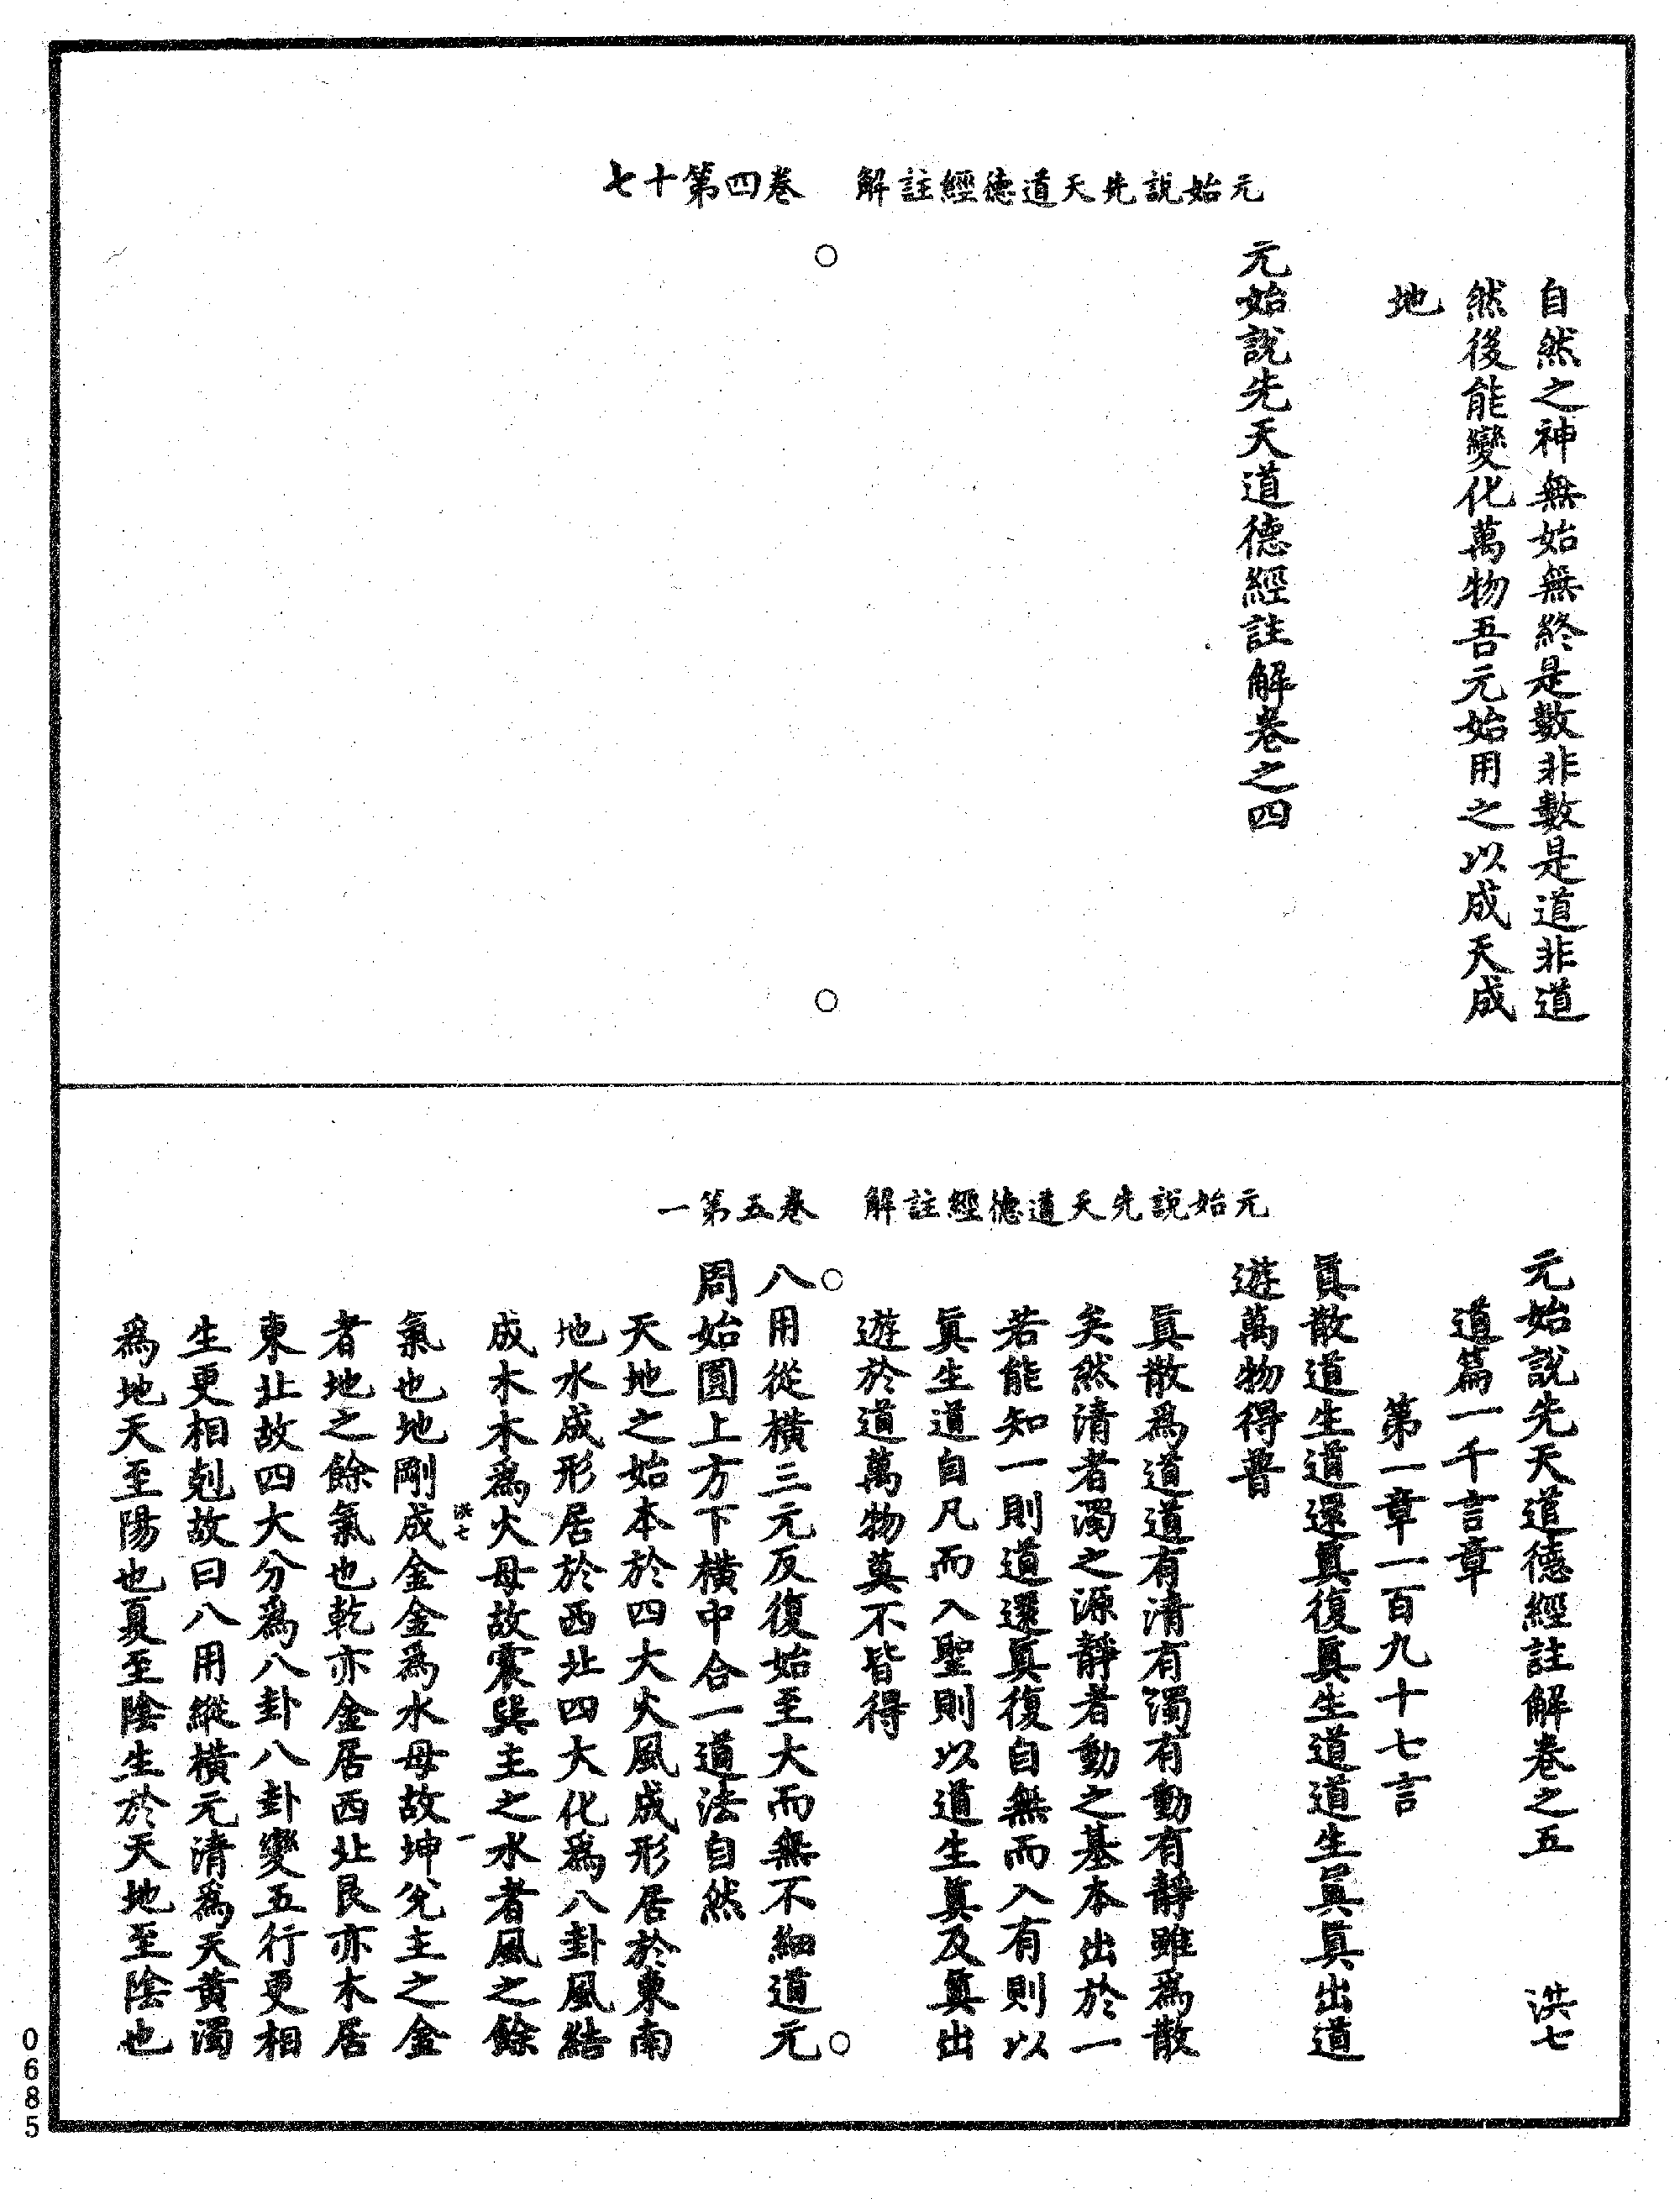 元始說先天道德經註解　卷四第十七
自然之神無始無終是數非數是道非道
然後能變化萬物吾元始用之以成天成
地
元始說先天道德經註解卷之四
元始說先天道德經註解　卷五第一
元始說先天道德經註解卷之五　洪七
道篇一千言章
第一章一百九十七言
眞散道生道還眞復眞生道道生眞眞出道
遊萬物得普
眞散爲道道有清有濁有動有靜雖爲散
矣然清者濁之源靜者動之基本出於一
若能知一則道還眞復自無而入有則以
眞生道自凡而入聖則以道生眞及眞出
遊於道萬物莫不皆得
八用從橫三元反復始至大而無不細道元
周始圓上方下橫中合一道法自然
天地之始本於四大火風成形居於東南
地水成形居於西北四大化爲八卦風結
成木木爲火母故震巽主之水者風之餘
洪七　一
氣也地剛成金金爲水母故坤兌主之金
者地之餘氣也乾亦金居西北艮亦木居
東北故四大分爲八卦八卦變五行更相
生更相剋故曰八用縱橫元清爲天黃濁
爲地天至陽也夏至陰生於天地至陰也
0685